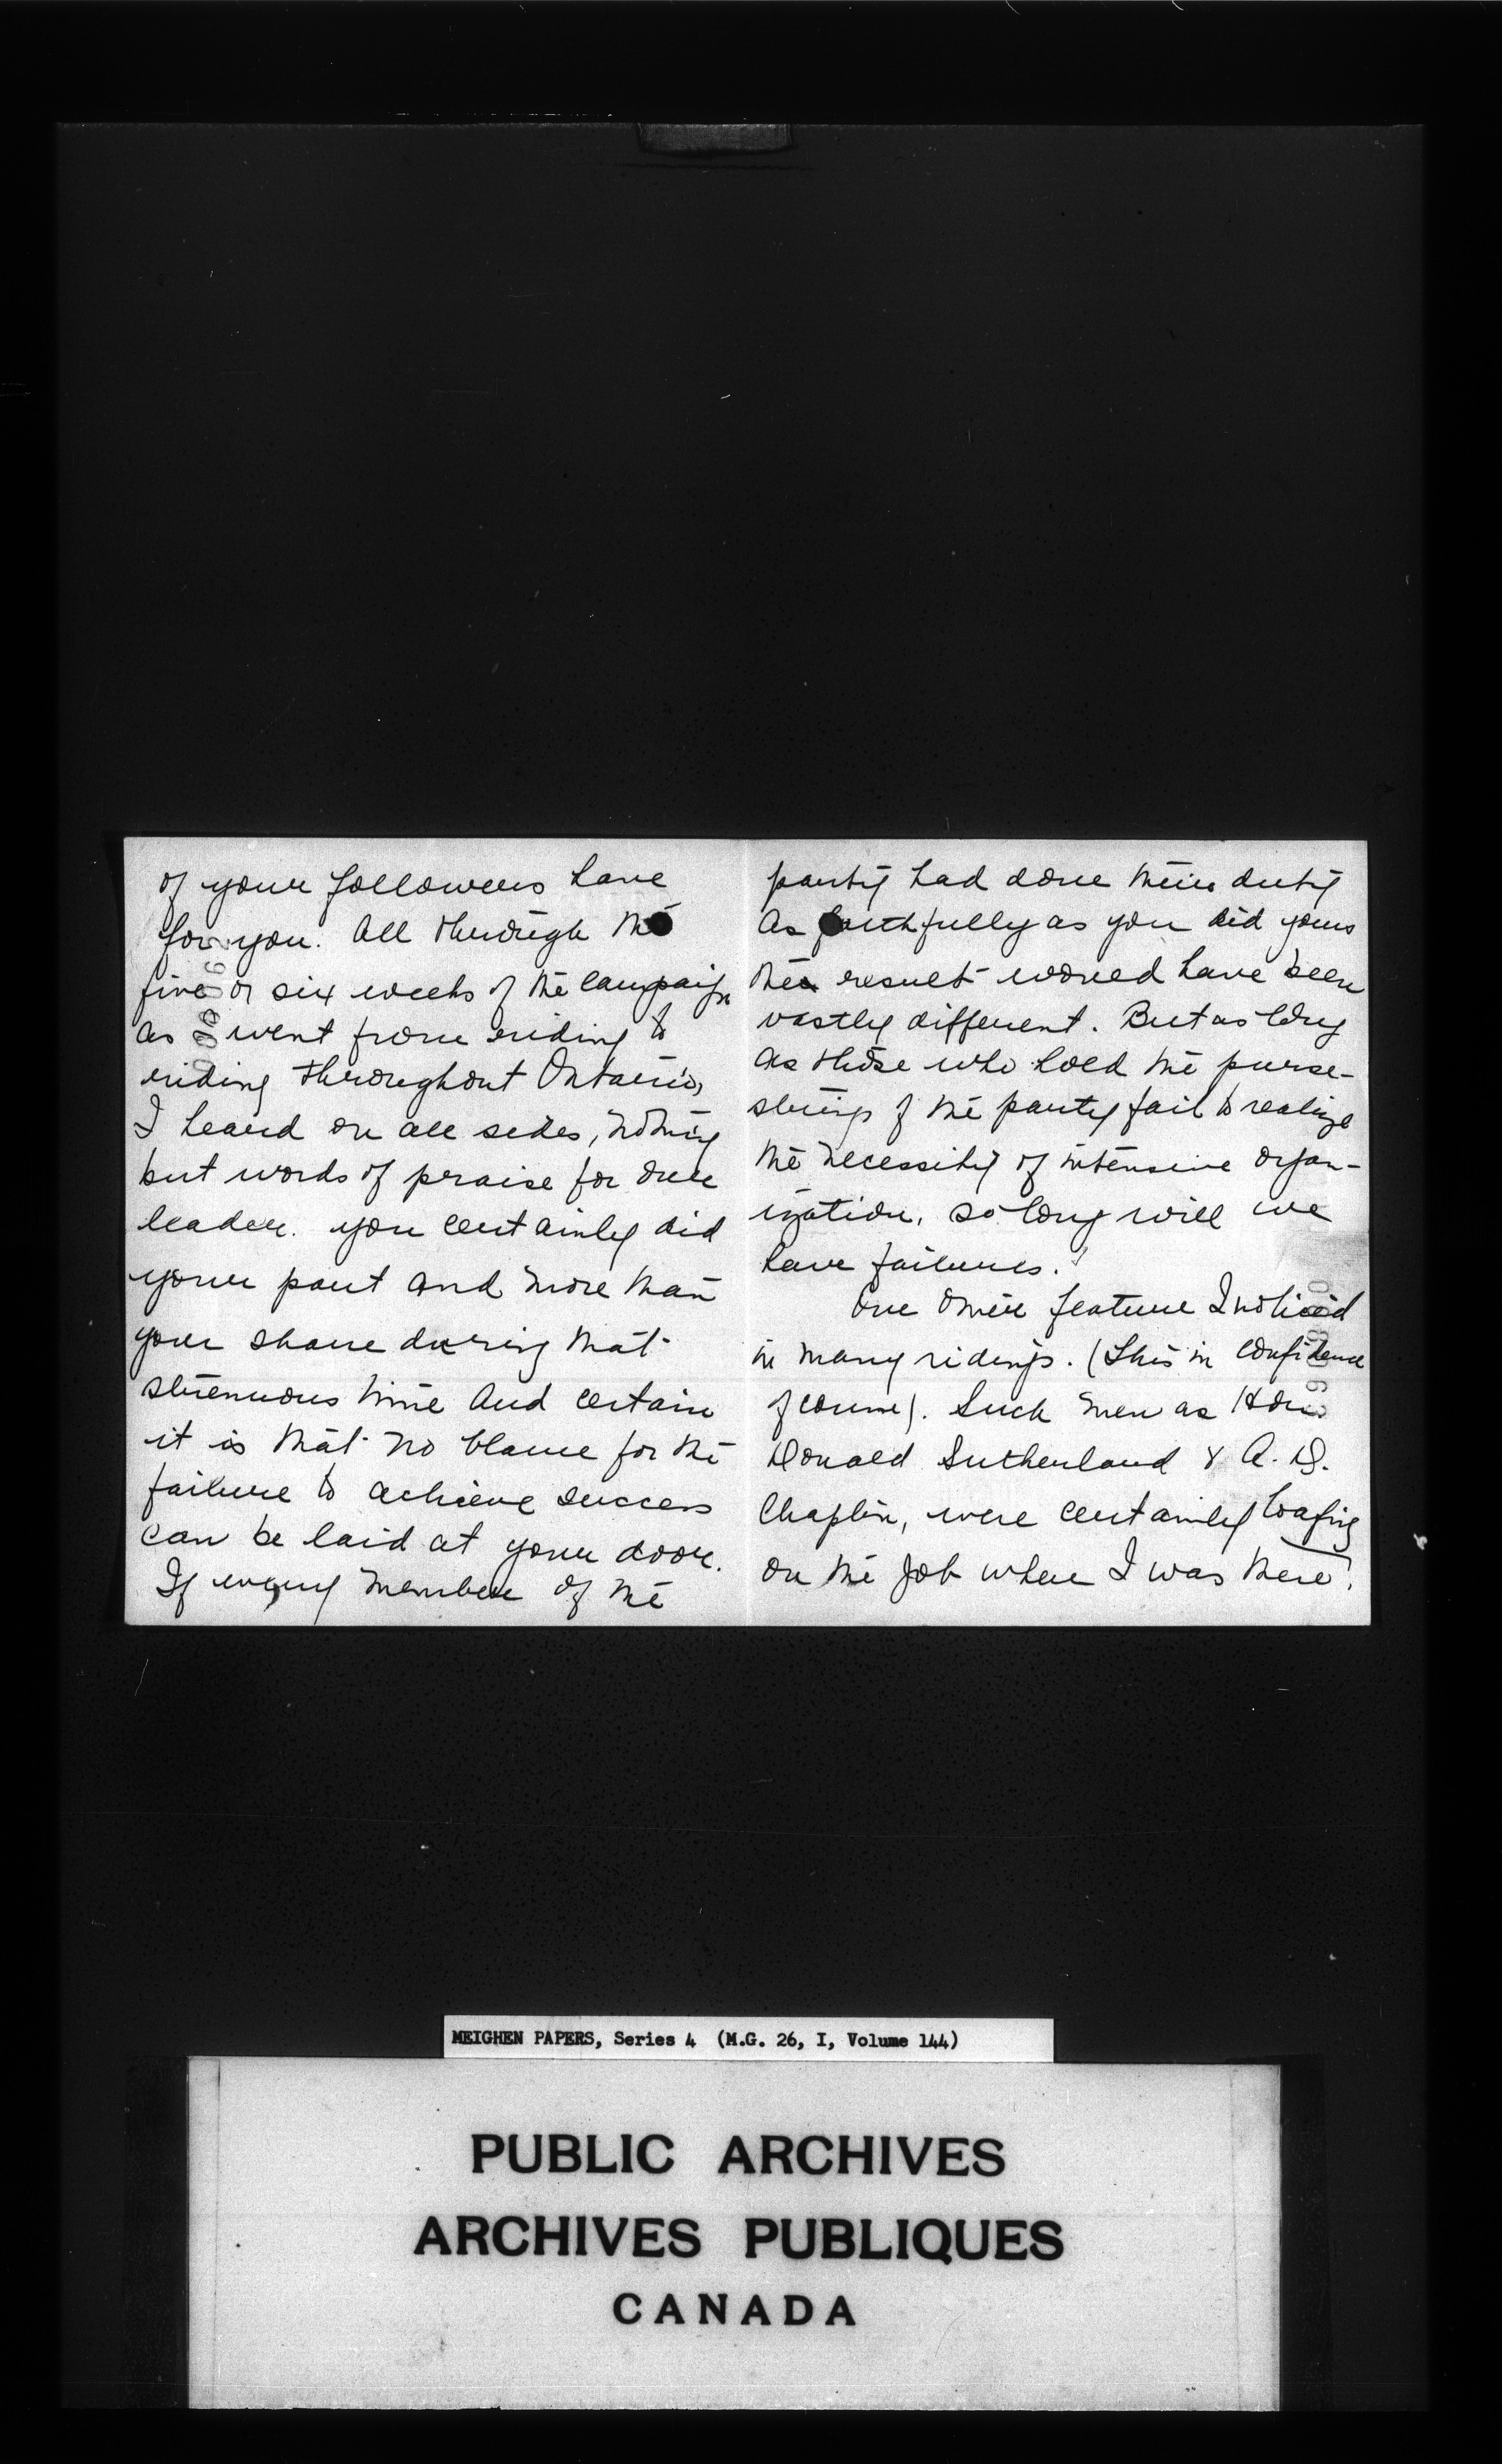 of your followers have
for you. All through the
five or six weeks of the campaign
as I went from riding to
riding throughout Ontario,
I heard on all sides, nothing
but words of praise for our
leader. You certainly did
your part and more than
your share during that
strenuous time and certain
it is that no blame for the
failure to achieve success
can be laid at your door.
If every member of the
party had done their duty
as faithfully as you did yours
the result would have been
vastly different. But as long
as those who hold the purse-
strings of the party fail to realize
the necessity of intensive organ-
ization, so long will we
have failures.
One other feature I noticed
in many ridings. (This in confidence
of course). Such men as Hon.
Donald Sutherland & A. D.
Chaplin, were certainly loafing
on the job when I was there.
MEIGHEN PAPERS, Series 4 (M.G. 26, I, Volume 144)
PUBLIC ARCHIVES
ARCHIVES PUBLIQUES
CANADA